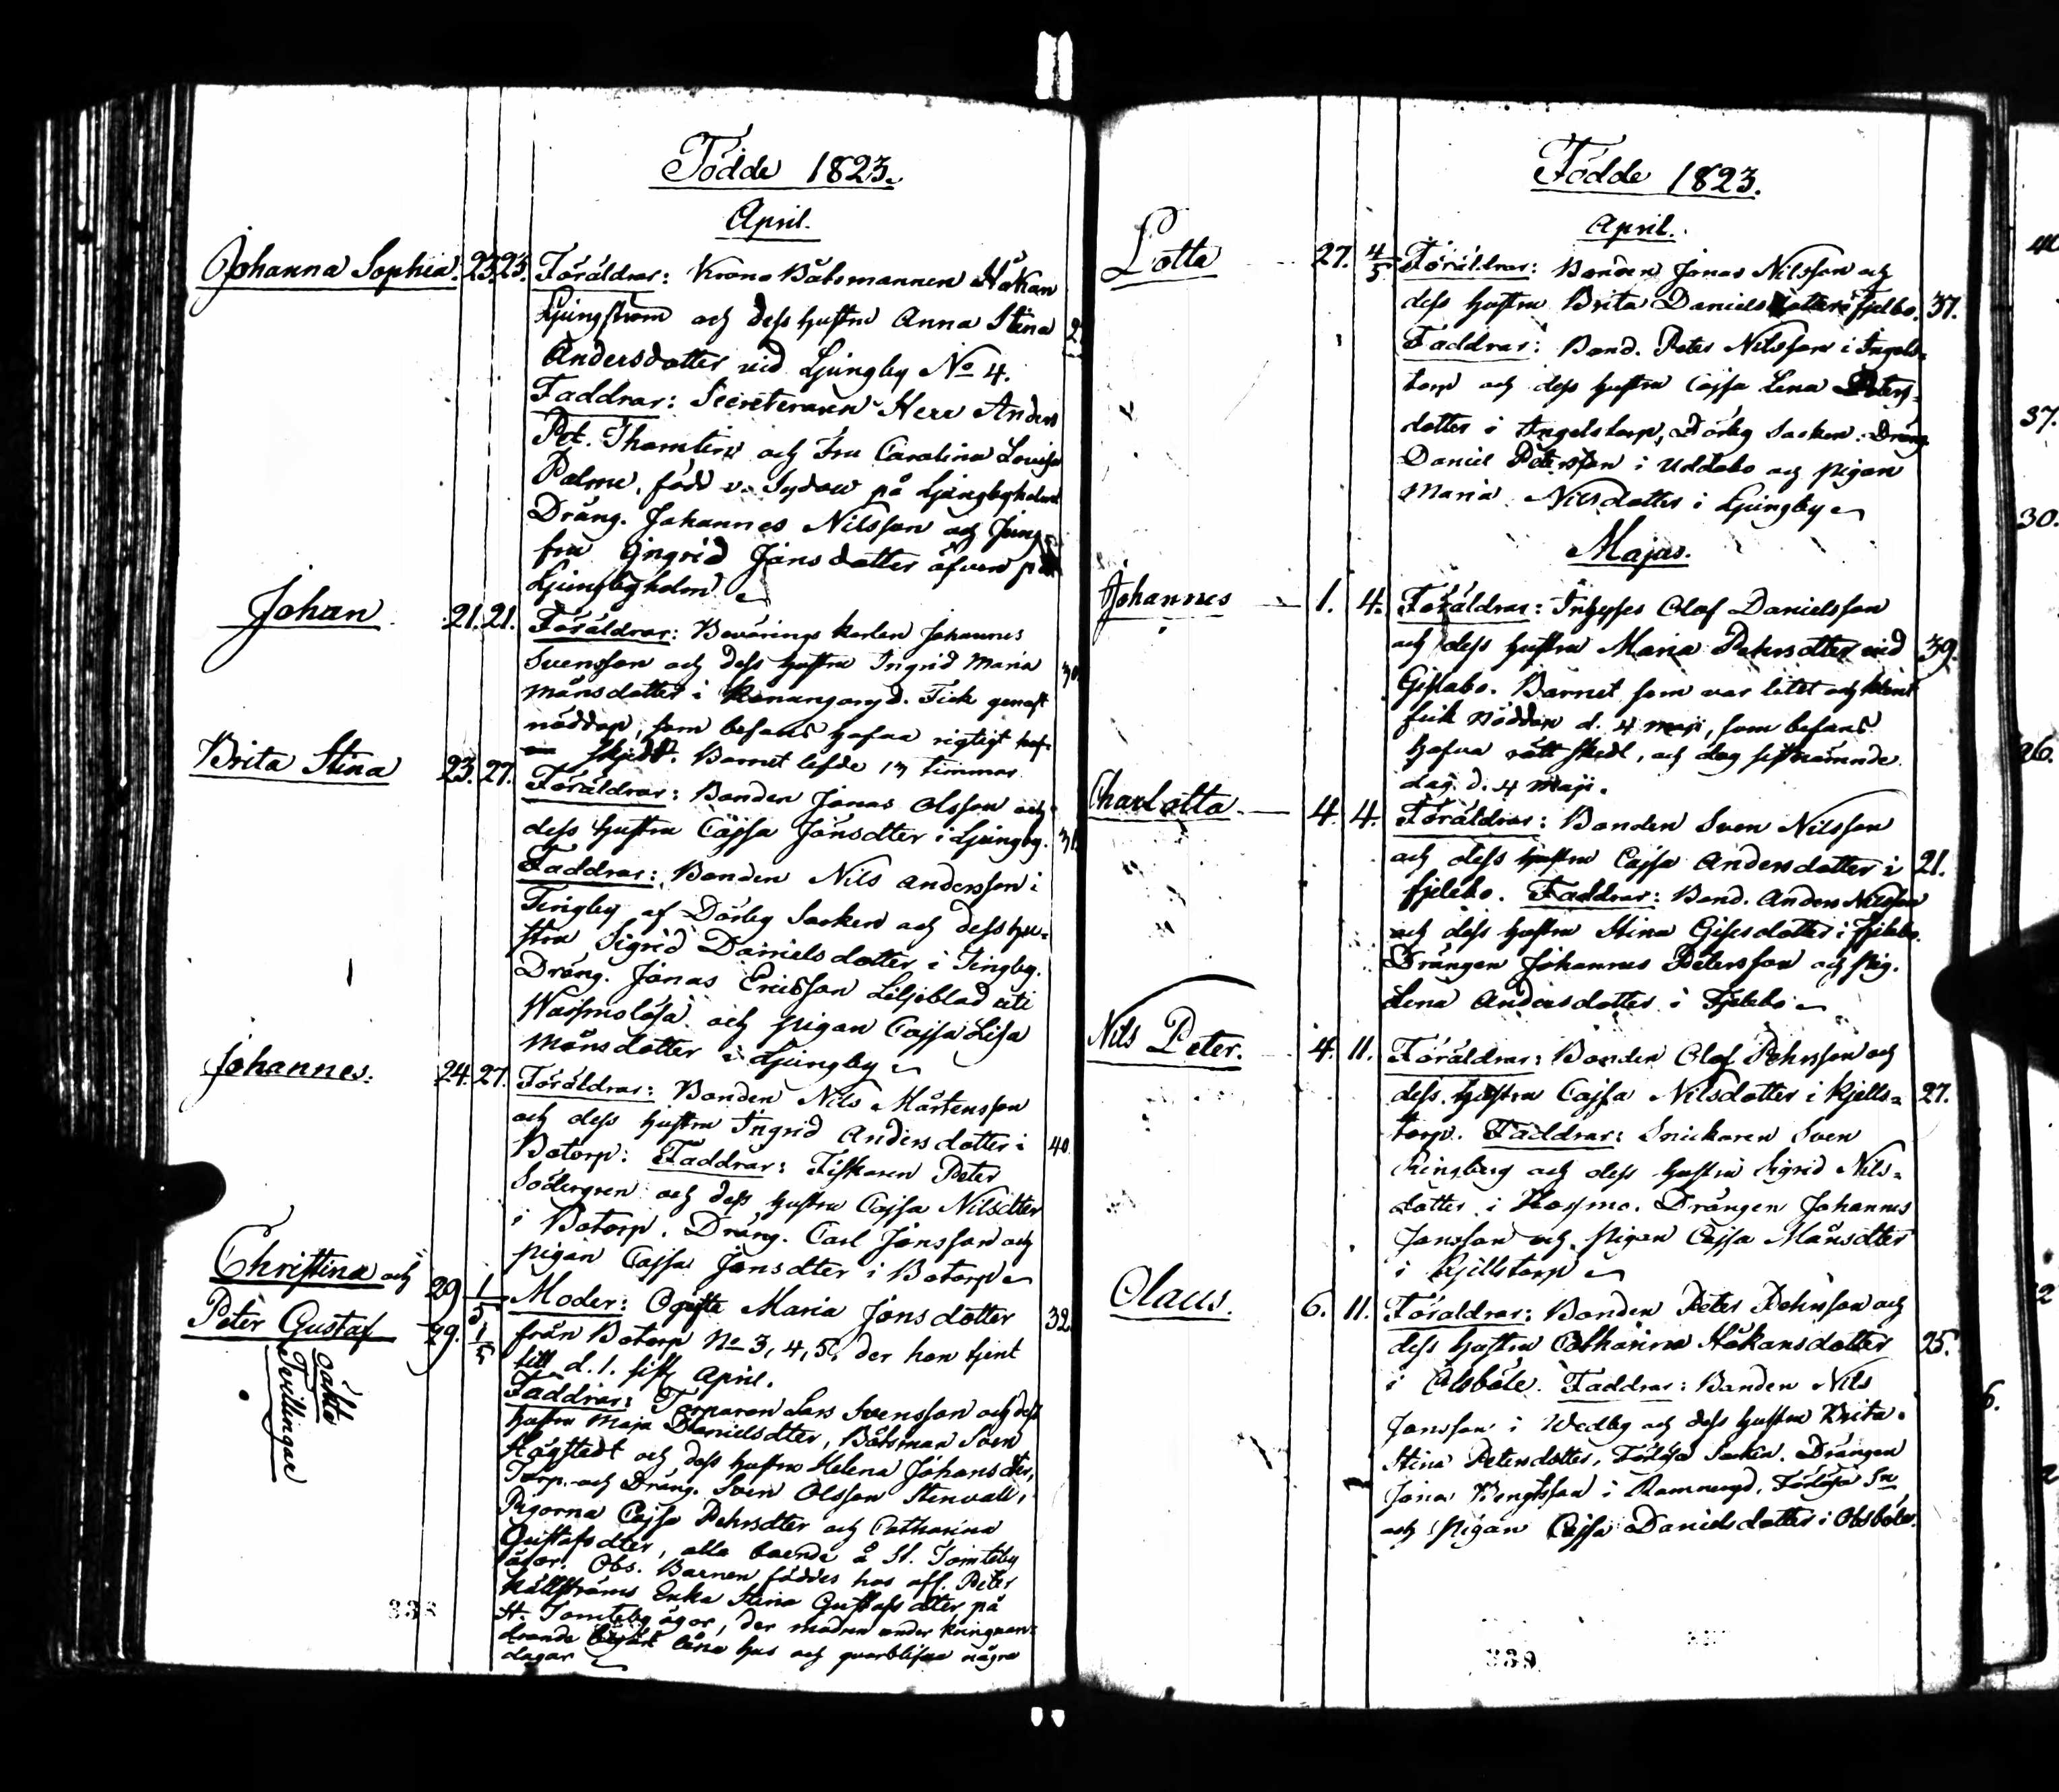 Födde 1823.
April.
Johanna Sophia. 23. 23. Föräldrar: Krono Båtsmannen Håkan
Ljungström och dess hustru Anna Stina
Andersdotter vid Ljungby No 4.
Faddrar: Secreteraren Herr Anders
Pet. och Fru Carolina Lovisa
Palme, född v. Sydow på Ljungbyholm
Dräng. Johannes Nilsson och Jung-
fru Ingrid Jönsdotter äfven på
Ljungbyholm
Johan. 21. 21. Föräldrar: Bevärings karlen Johannes
Svensson och dess hustru Ingrid Maria
Månsdotter i Fick genast
nöddop, som befans hafva rigtigt
skjedt. Barnet lefde 17 timmar
Brita Stina 23. 27. Föräldrar: Bonden Jonas Olsson och
dess hustru Cajsa Jönsdter i Ljungby.
Faddrar: Bonden Nils Andersson i
Tingby af Dörby Socken och dess hu-
stru Sigrid Danielsdotter i Tingby.
Dräng. Jonas Ericsson Liljeblad uti
och pigan Cajsa Lisa
Månsdotter i Ljungby
Johannes. 24. 27. Föräldrar: Bonden Nils Mårtensson
och dess hustru Ingrid Andersdotter i 40.
Botorp: Faddrar: Fiskaren Peter
Södergren och dess hustru Cajsa Nilsdtter
i Botorp. Dräng. Carl Jönsson och
pigan Cajsa Jönsdter i Botorp
Christina och 29 1/5 Moder: Ogifta Maria Jonsdotter 32.
Peter Gustaf 29. 1/5 från Botorp No 3, 4, 5, der hon tjent
oäkta
Tvillingar
till d. 1. sistl. April.
Faddrar: Torparen Lars Svensson och dess
hustru Maja Danielsdtter, Båtsman Sven
Högstedt och dess hustru Helena Johansdter,
Torp. och Dräng. Sven Olsson Stenvall,
Pigorna Cajsa Pehrsdter och Catharina
Gustafsdter, alla boende å St. Tomteby
ägor. Obs. Barnen föddes hos afl. Peter
Källströms Enka Stina Gustafsdtter på
St. Tomteby ägor, der modren under kringvan-
drande begärt låna hus och qvarblifva några
dagar
338
Födde 1823.
April.
Lotta 27. 4/5 Föräldrar: Bonden Jonas Nilsson och
dess hustru Brita Danielsdotter i Fjelbo. 37.
Faddrar: Bond. Peter Nilsson i Ingels-
torp och dess hustru Cajsa Lena Peters-
dotter i Ingelstorp, Dörby Socken. Dräng
Daniel Petersson i Uddebo och pigan
Maria Nilsdotter i Ljungby
Majus.
Johannes 1. 4. Föräldrar: Olof Danielsson
och dess hustru Maria Pehrsdtter vid 39.
Gislabo. Barnet som var litet och klent
fick nöddop d. 4 maji, som befans
hafva rätt skedt, och dog sistnämnde
dag d. 4 maji.
Charlotta 4. 4. Föräldrar: Bonden Sven Nilsson
och dess hustru Cajsa Andersdotter i 21.
Fjelebo. Faddrar: Bond. Anders Nilsson
och dess hustru Stina Gisesdotter i Fjelebo.
Drängen Johannes Petersson och pig.
Lena Andersdotter i Fjelebo
Nils Peter. 4. 11. Föräldrar: Bonden Olof Pehrsson och
dess hustru Cajsa Nilsdotter i Kjells- 27.
torp. Faddrar: Snickaren Sven
Ringberg och dess hustru Sigrid Nils-
dotter i Hossmo. Drängen Johannes
Jonsson och pigan Cajsa Månsdtter
i Kjellstorp
Olaus. 6. 11. Föräldrar: Bonden Peter Pehrsson och
dess hustru Catharina Håkansdotter 25.
i Olsbäle. Faddrar: Bonden Nils
Jonsson i Wedby och dess hustru Brita
Stina Petersdotter, Förlösa Socken. Drängen
Jonas Bengtsson i Förlösa Sn
och pigan Cajsa Danielsdotter i
339